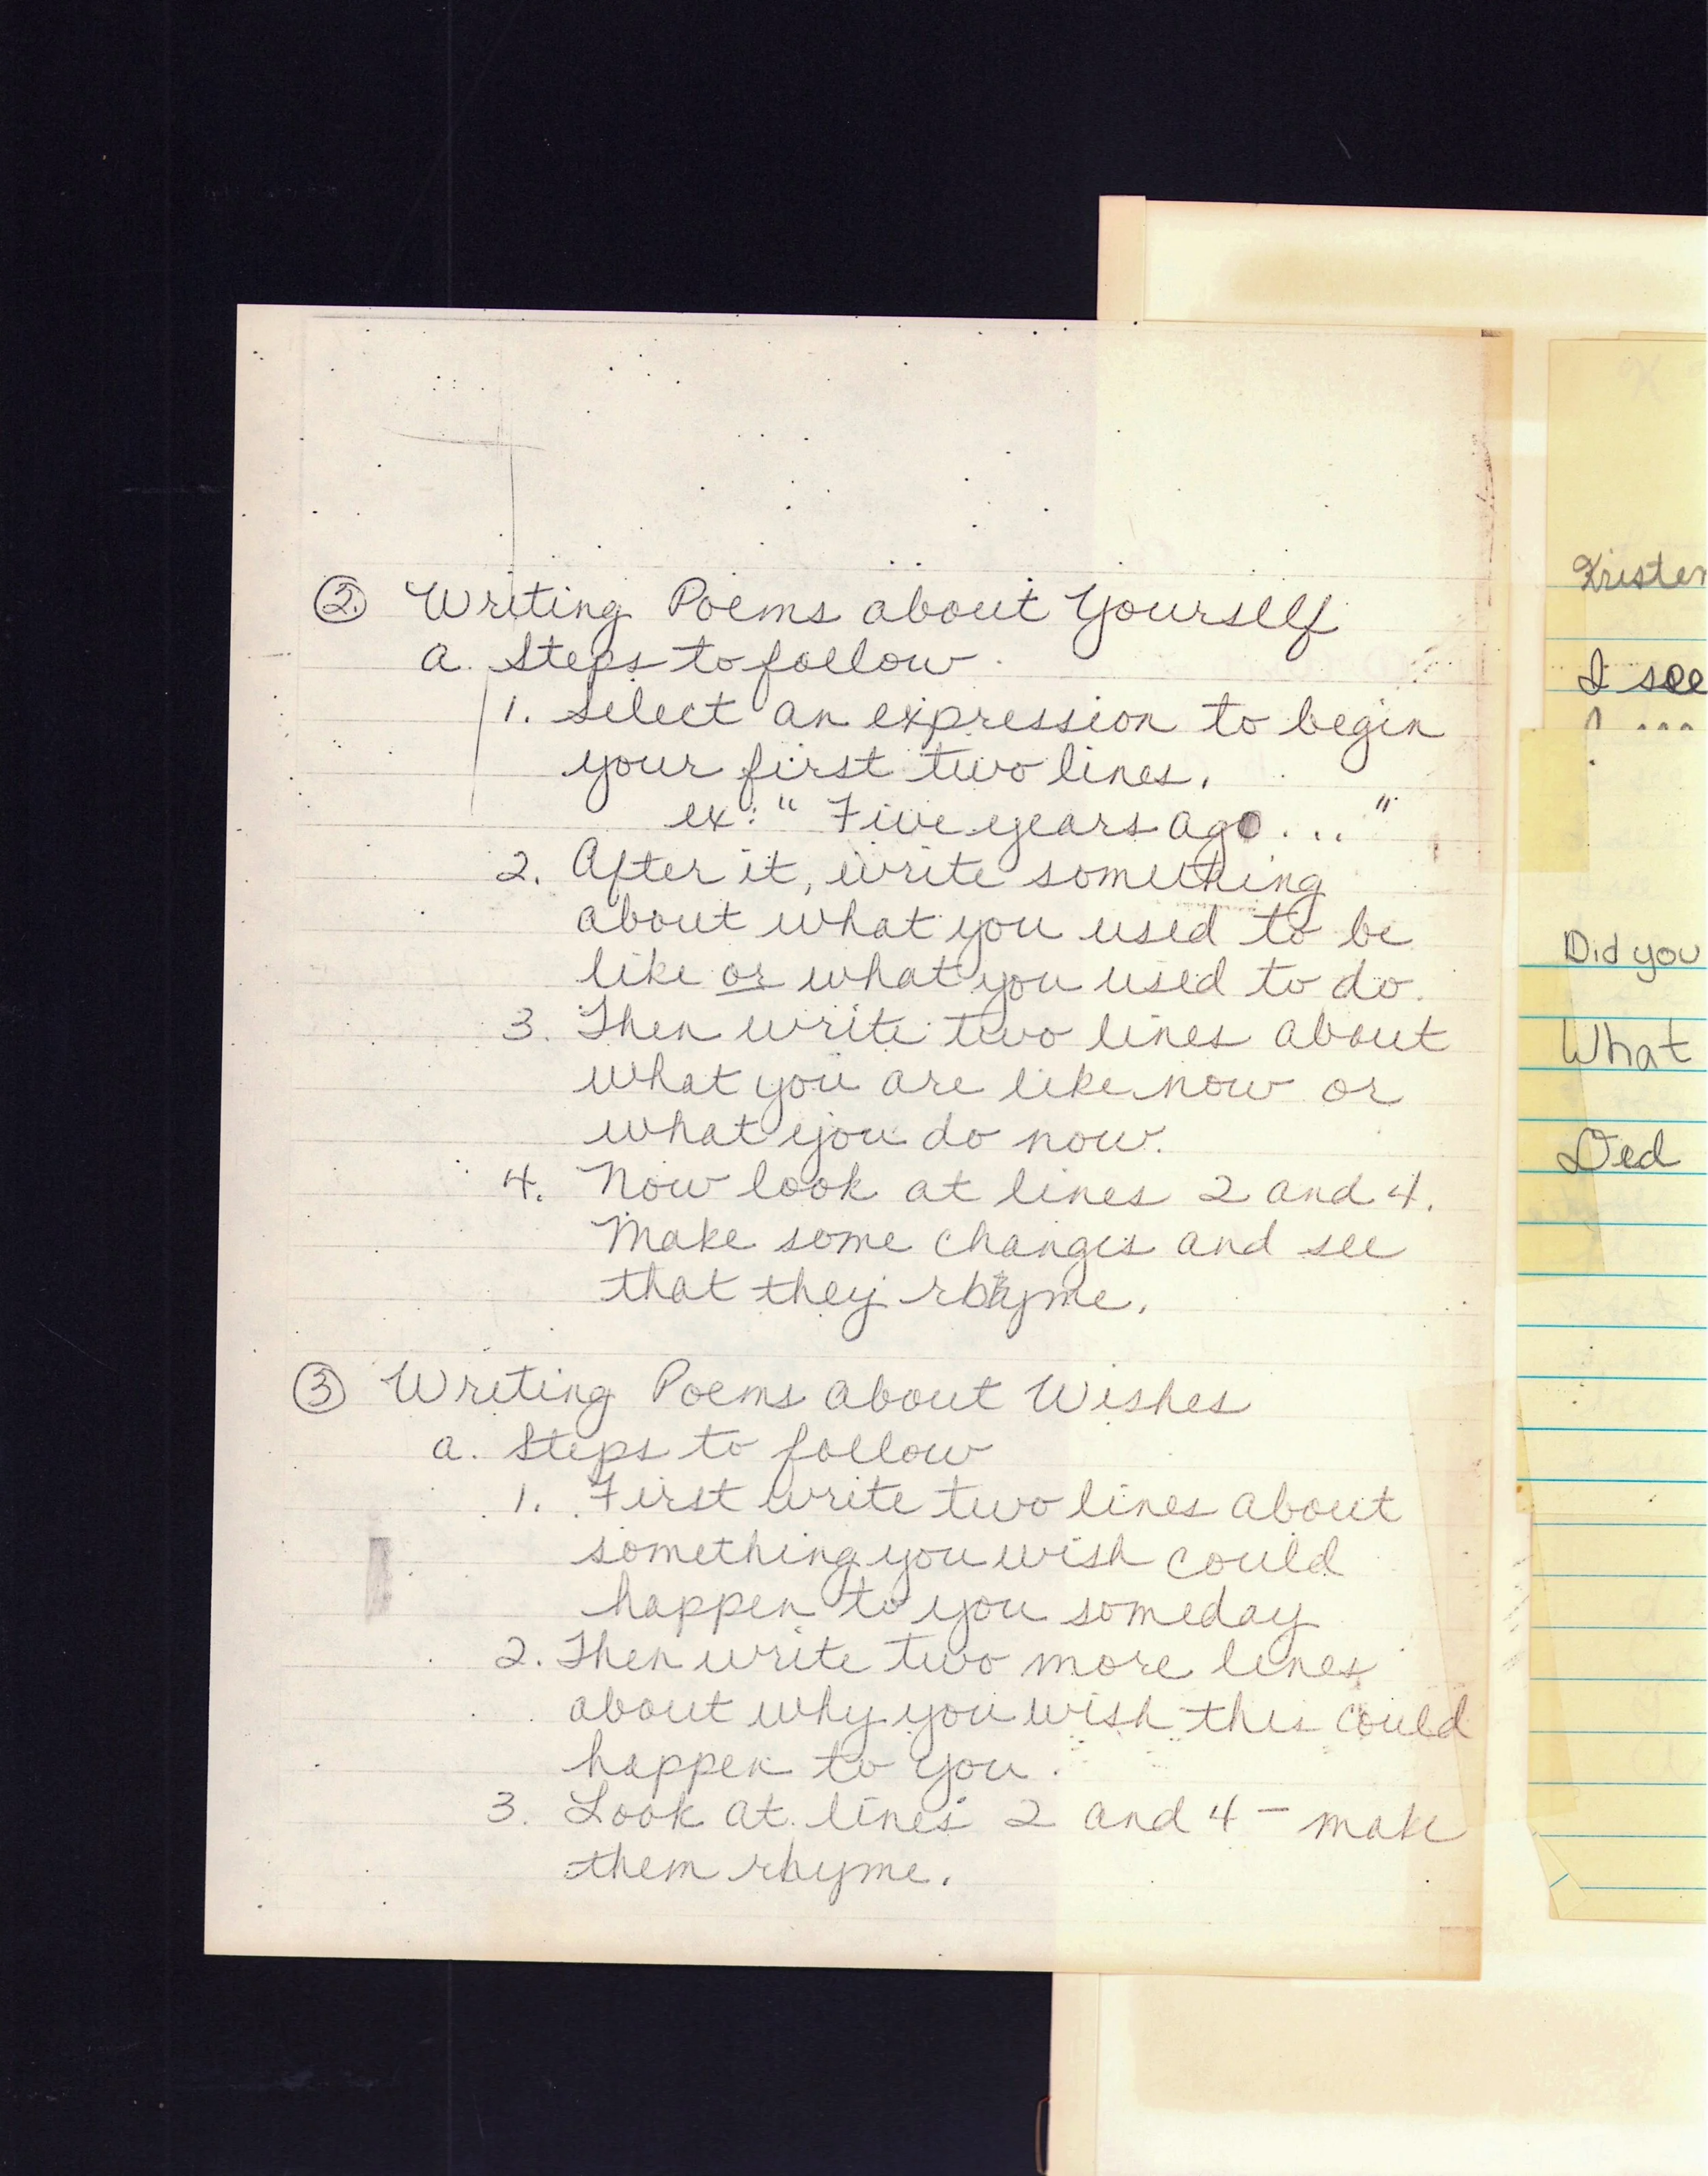 ② Writing Poems about Yourself
a. Steps to follow
1. Select an expression to begin
your first two lines.
ex: "Five years ago..."
2. After it, write something
about what you used to be
like or what you used to do.
3. Then write two lines about
what you are like now or
what you do now.
4. Now look at lines 2 and 4.
Make some changes and see
that they rhyme.
③ Writing Poems about Wishes
a. Steps to follow
1. First write two lines about
something you wish could
happen to you someday
2. Then write two more lines
about why you wish this could
happen to you.
3. Look at lines 2 and 4 - make
them rhyme.
Kristen
I see
Did you
What
Did